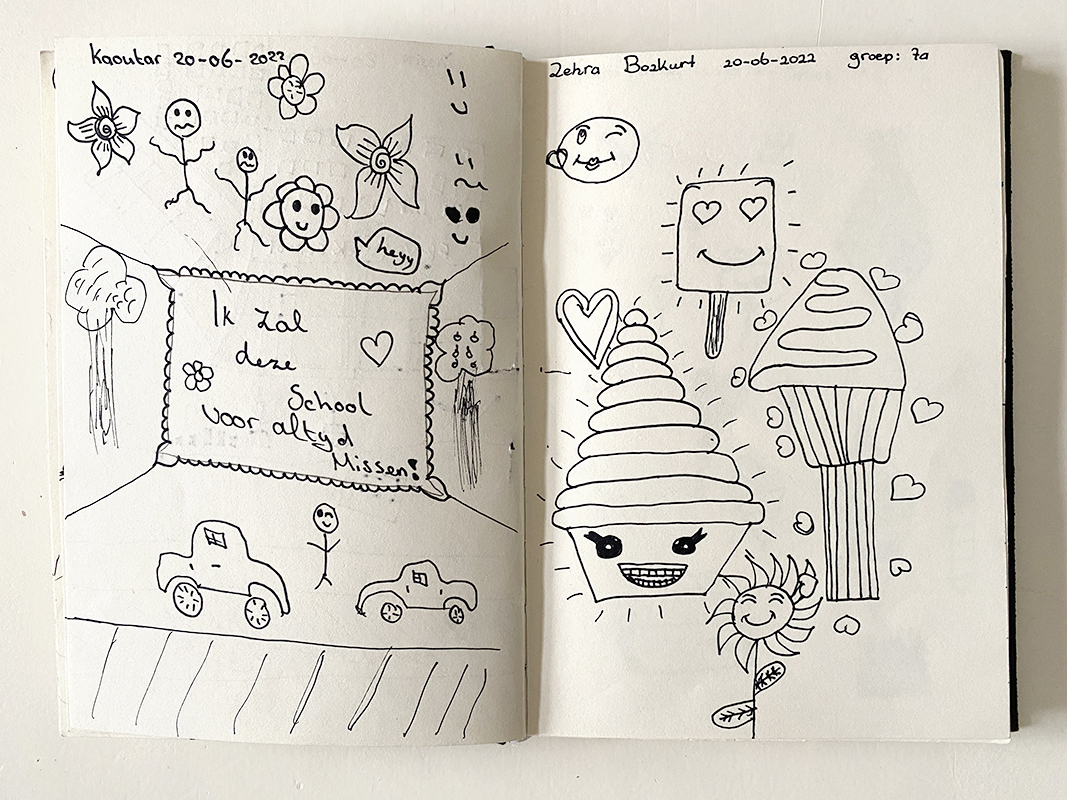 Kaoutar 20-06-2022
heyy
Ik zal
deze
School
voor altyd
Missen!
Zehra Bozkurt 20-06-2022 groep: 7a